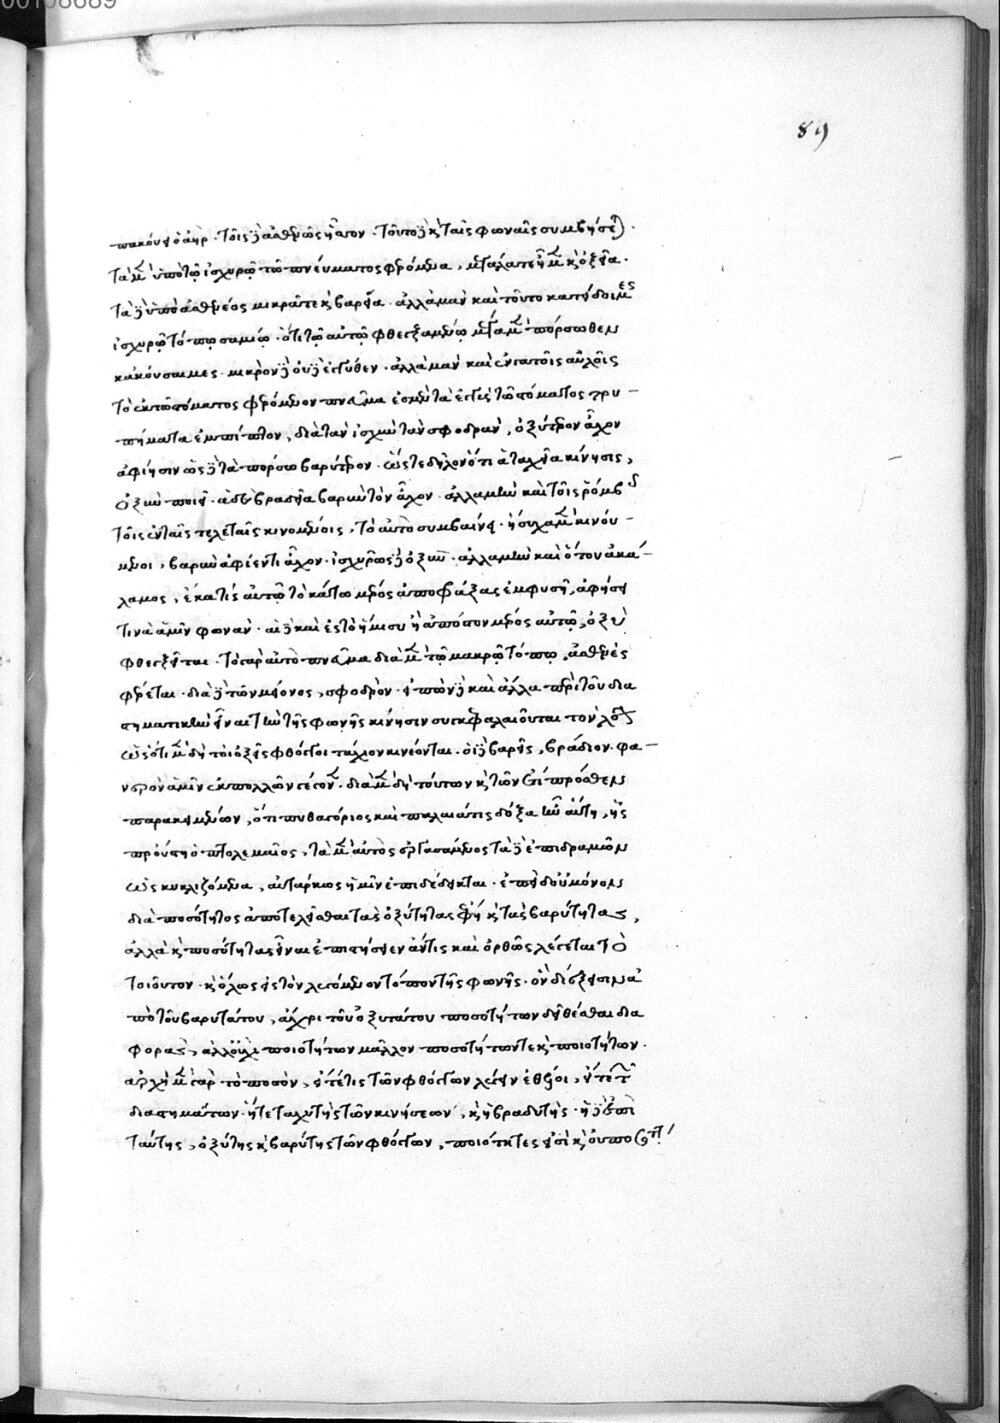 00108689
89
πακούει ὁ ἀὴρ. τοῖς δὲ ἀσθενῶς ἧττον. τοῦτο δὲ καὶ ταῖς φωναῖς συμβήσεται.
τὰ μὲν ὑπὸ τῷ ἰσχυρῷ τῶ πνεύματος φερόμενα, μεγάλα τε εἶμεν καὶ ὀξεῖα.
τὰ δὲ ὑπὸ ἀσθενέος μικρά τε καὶ βαρεῖα. ἀλλὰ μὰν καὶ τοῦτο κατίδοιμες
ἰσχυρῷ τόπῳ σαμείῳ. ὅτι τῷ αὐτῷ φθεγξαμένῳ μέγα μὲν πόρσωθεν
κἀκούσαιμες. μικρὸν δὲ οὐδὲ ἐγγύθεν. ἀλλὰ μὰν καὶ ἐν γα τοῖς αὐλοῖς
τὸ ἐκ τῶ στόματος φερόμενον πνεῦμα ἐς μὲν τὰ ἐγγὺς τῶ στόματος τρυ-
πήματα ἐμπίπτον, διὰ τὰν ἰσχὺν τὰν σφοδρὰν, ὀξύτερον ἆχον
ἀφίησιν ὡς δὲ τὰ πόρσω βαρύτερον. ὥστε δῆλον ὅτι ἁ ταχεῖα κίνησις,
ὀξὺν ποιεῖ. ἁ δὲ βραδεῖα βαρὺν τὸν ἆχον. ἀλλὰ μὴν καὶ τοῖς ῥόμβοις
τοῖς ἐν ταῖς τελεταῖς κινουμένοις, τὸ αὐτὸ συμβαίνει. ἡσυχᾶ μὲν κινού-
μενοι, βαρὺν ἀφίεντι ἆχον. ἰσχυρῶς δὲ ὀξύν. ἀλλὰ μὴν καὶ ὅ γου ὁ κά-
λαμος, ἐκ αἴ τις αὐτῷ τὸ κάτω μέρος ἀποφράξας ἐμφυσῇ, ἀφήσει
τινὰ ἁμῖν φωνάν. αἰ δὲ καὶ ἐς τὸ ἥμισυ ἢ ἀπόστον μέρος αὐτῷ, ὀξὺ
φθεγξεῖται. τὸ γὰρ αὐτὸ πνεῦμα διὰ μὲν τῷ μακρῷ τόπῳ, ἀσθενὲς
φέρεται. διὰ δὲ τῶ μείονος, σφοδρόν. εἰπὼν δὲ καὶ ἄλλα περὶ τοῦ δια
στηματικὴν εἶναι τὴν τῆς φωνῆς κίνησιν συγκεφαλαιοῦται τὸν λόγον
ὡς ὅτι μὲν δή τοι ὀξεῖς φθόγγοι τάχιον κινέονται. οἱ δὲ βαρεῖς, βράδιον. φα-
νερὸν ἁμῖν ἐκ πολλῶν γέγονεν. διὰ μὲν δὴ τούτων καὶ τῶν ἔτι πρόσθεν
παρακειμένων, ὅτι πυθαγόριος καὶ παλαιά τις δόξα ἦν αὕτη, ἧς
προύστη ὁ πτολεμαῖος, τὰ μὲν αὐτὸς ἐργασάμενος τὰ δὲ ἐπιδραμὼν
ὡς κυκλιζόμενα, αὐτάρκως ἡμῖν ἐπιδέδεικται. ἐπεὶ δ οὐ μόνον
διὰ ποσότητος ἀποτελεῖσθαι τὰς ὀξύτητας φησὶ καὶ τὰς βαρύτητας,
ἀλλὰ καὶ ποσότητας εἶναι ἐπιστήσειεν ἄν τις καὶ ὀρθῶς λέγεται τὸ
τοιοῦτον. καὶ ὅλως εἰς τὸν λεγόμενον τόπον τῆς φωνῆς. ὃν διέξεισιν ἀ
πὸ τοῦ βαρυτάτου, ἄχρι τοῦ ὀξυτάτου ποσοτήτων δεῖ θέσθαι δια
φορὰς, ἀλλ οὐχὶ ποιοτήτων μᾶλλον ποσοτήτων τε καὶ ποιοτήτων.
ἀρχὴ μὲν γὰρ τὸ ποσὸν, εἴτε τις τῶν φθόγγων λέγειν ἐθέλοι, εἴτε τῶν
διαστημάτων. ἥ τε ταχυτὴς τῶν κινήσεων, καὶ ἡ βραδυτής. ἡ δὲ ἐπὶ
ταύτης, ὀξύτης καὶ βαρύτης τῶν φθόγγων, ποιότητές εἰσι καὶ οὔπω ἔτι